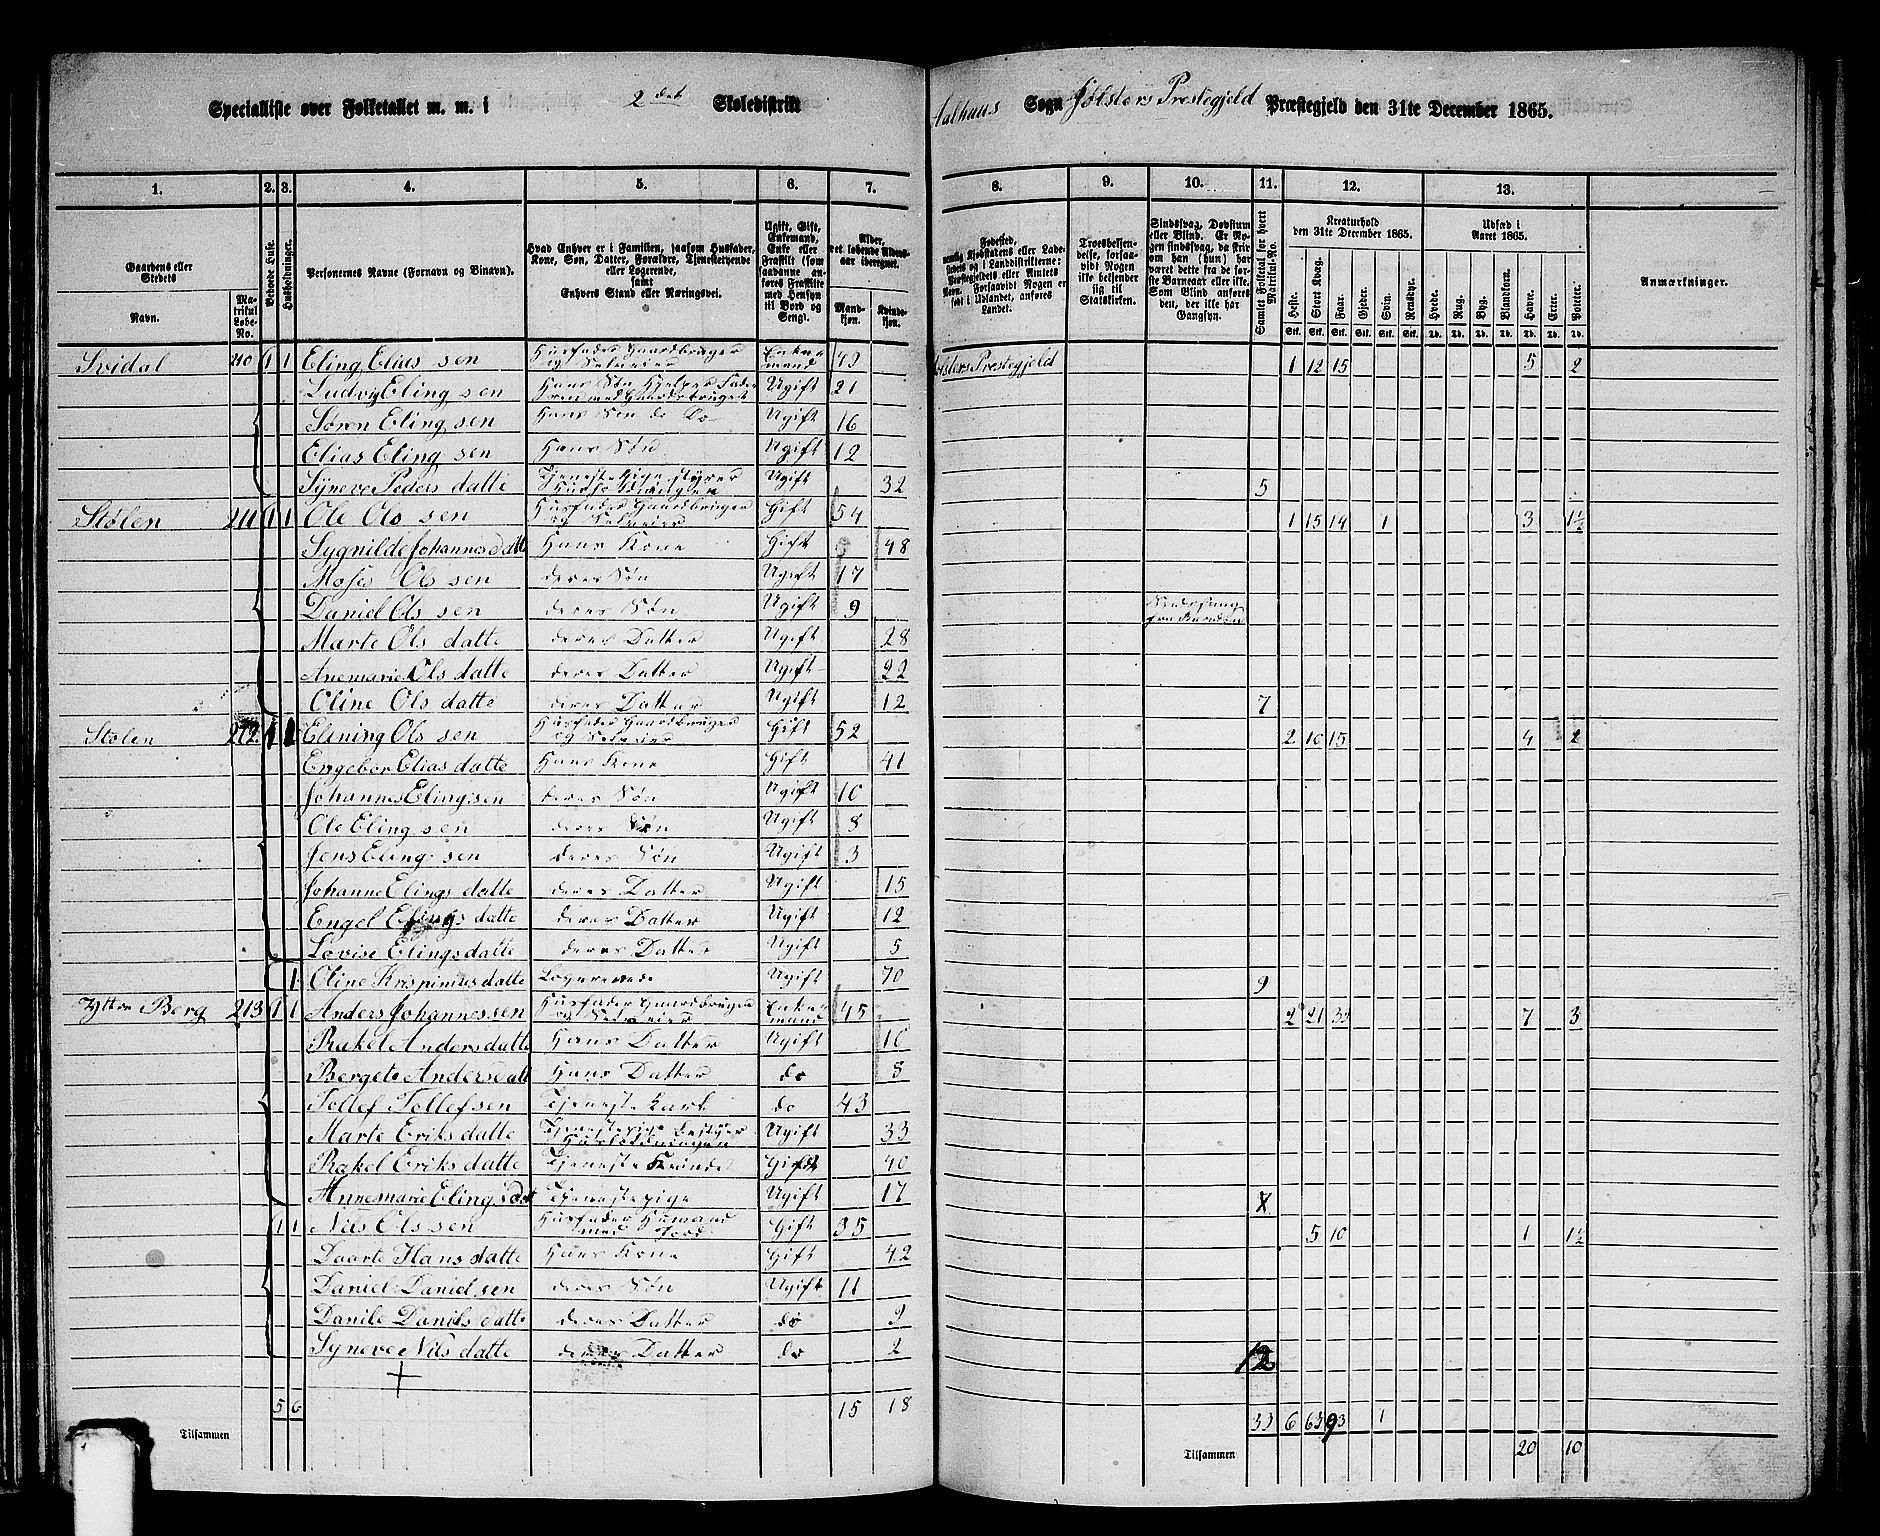 Specialliste over Folketallet m. m. i 2det Skoledistrikt Aalhaus Sogn Jølsters Prestegjeld Præstegjeld den 31te December 1865.
1. 2. 3. 4. 5. 6. 7. 8. 9. 10. 11. 12. 13.
Gaardens eller Stedets
Navn.
Matrikul Løbe-No.
Beboede Huse.
Husholdninger.
Personernes Navne (Fornavn og Binavn).
Hvad Enhver er i Familien, saasom Husfader, Kone, Søn, Datter, Forældre, Tjenestetyende eller Logerende, samt Enhvers Stand eller Næringsvei.
Ugift, Gift, Enkemand, Enke eller Fraskilt (som saadanne anføres Fraskilte med Hensyn til Bord og Seng).
Alder, det løbende Alders-aar iberegnet.
Mand-kjøn.
Kvinde-kjøn.
Fødested,
Troesbekjendelse, forsaavidt Nogen ikke bekjender sig til Statskirken.
Sindssvag, Døvstum eller Blind. Er Nogen sindssvag, da hvorvidt han (hun) har været dette fra de første Barneaar eller ikke. Som Blind anføres den, der ikke har Gangsyn.
Samlet Folketal for hvert Matrikul-No.
Kreaturhold den 31te December 1865.
Heste. Stort Kvæg. Faar. Gjeder. Svin. Rensdyr.
Udsæd i Aaret 1865.
Hvede. Rug. Byg. Blandkorn. Havre. Erter. Poteter.
Anmærkninger.
Svidal 210 1 1 Eling Elias sen Husfader Gaardbruger og Selveier Enkemand 49 Jølsters Prestegjeld 1 12 15 5 2
Ludvig Eling sen Hans Søn Hjelper Faderen med Gaardsbruget Ugift 21
Søren Eling sen Hans Søn do Do Ugift 16
Elias Eling sen Hans Søn Ugift 12
Syneve Peders datte Ugift 32 5
Stølen 211 1 1 Ole Ols sen Husfader Gaardbruger og Selveier Gift 54 1 15 14 1 3 1½
Sygnilde Johannesdatte Hans Kone Gift 48
Moses Ols sen deres Søn Ugift 17
Daniel Ols sen deres Søn Ugift 9
Marte Ols datte deres Datter Ugift 28
Anemarie Ols datte deres Datter Ugift 22
Oline Ols datte deres Datter Ugift 12 7
Stolen 212 1 1 Elining Ols sen Husfader Gaardbruger og Selveier Gift 52 2 10 15 4 2
Engebor Elias datte Hans Kone Gift 41
Johannes Eling sen deres Søn Ugift 10
Ole Eling sen deres Søn Ugift 8
Jens Eling sen deres Søn Ugift 3
Johanne Elings datte deres Datter Ugift 15
Engel Elings datte deres Datter Ugift 12
Lovise Elings datte deres Datter Ugift 5
1 Oline Krispinius datte Logerende Ugift 70 9
Yttre Berg 213 1 1 Anders Johannessen Husfader Gaardbruger og Selveier Enkemand 45 2 21 33 7 3
Rakel Anders datte Hans Datter Ugift 10
Berget Andersdatt Hans Datter do 8
Tollef Tollefsen Tjeneste Karl do 43
Marte Eriks datte Tjenestepige bestyrer Husholdningen Ugift 33
Rakel Eriks datte Tjeneste Kvinde Gift 40
Annemarie Elings dat Tjenestepige Ugift 17
1 1 Nils Ols sen Husfader Husmand med Jord Gift 35 5 10 1 1½
Hans datte Hans Kone Gift 42
Daniel Daniel sen deres Søn Ugift 11
Danile Daniels datte deres Datter do 9
Syneve Nils datte deres Datter do 2 12
Tilsammen 5 6 15 18
Tilsammen 33 6 63 93 1 20 10